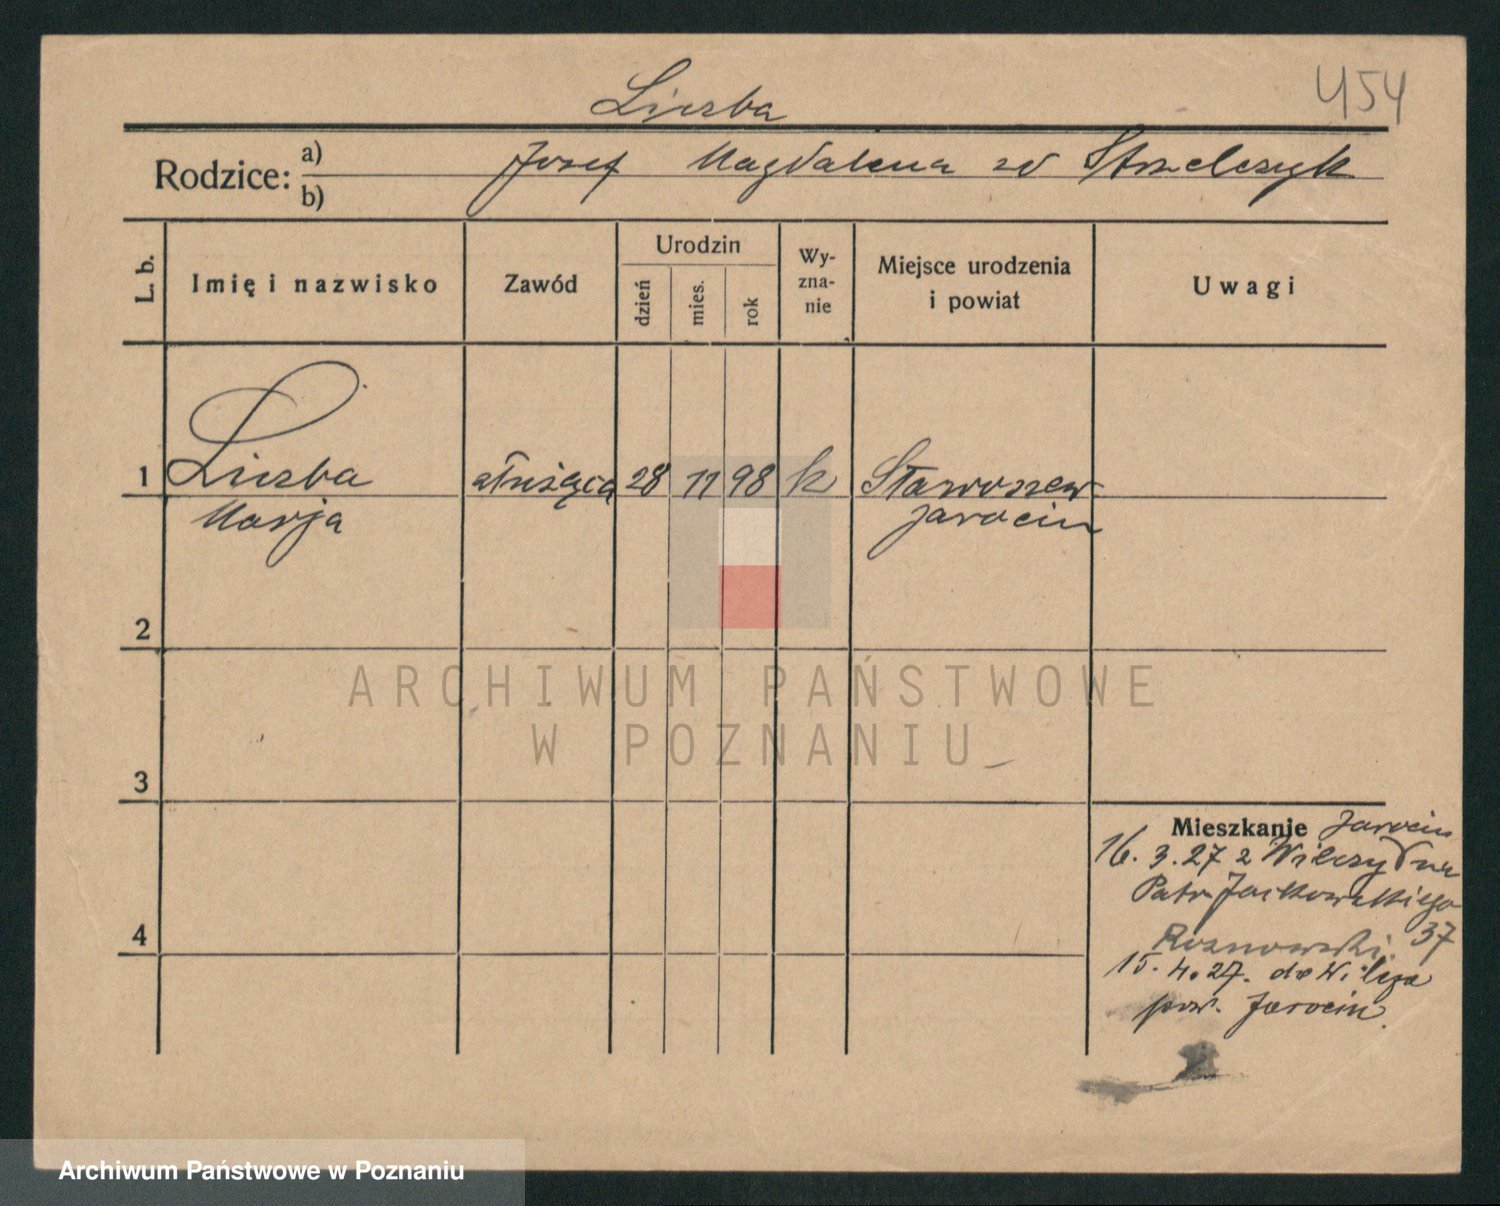 Liczba
454
Rodzice: a) Jozef Magdalena zd Strzelczyk
b)
L. b.
Imię i nazwisko
Zawód
Urodzin
dzień
mies.
rok
Wy-
zna-
nie
Miejsce urodzenia
i powiat
Uwagi
1 Liczba służąca 28 11 98 k Staroszew
Marja Jarocin
2
3
4
Mieszkanie Jarocin
16. 3. 27 z Wilczy
Patr. Jackowskiego
37
15. 4. 27. do Wilcza
pow. Jarocin.
ARCHIWUM PAŃSTWOWE
W POZNANIU
Archiwum Państwowe w Poznaniu